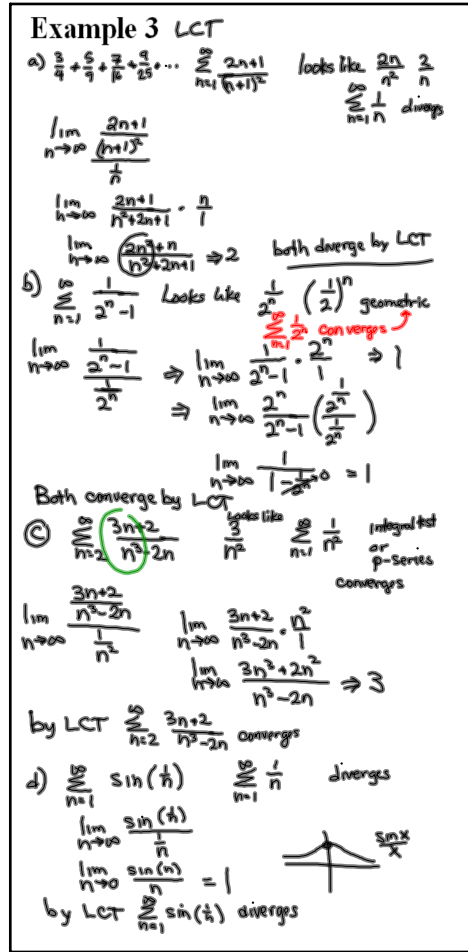 Example 3 LCT
a) 3/4 + 5/9 + 7/16 + 9/25 + ... ∞Σn=1 (2n+1)/(n+1)² looks like 2n/n² 2/n
∞Σn=1 1/n diverges
lim n→∞ ((2n+1)/(n+1)²)/(1/n)
lim n→∞ (2n+1)/(n²+2n+1) · n/1
lim n→∞ (2n²+n)/(n²+2n+1) ⇒ 2 both diverge by LCT
b) ∞Σn=1 1/(2ⁿ-1) Looks like 1/2ⁿ (1/2)ⁿ geometric
∞Σn=1 1/2ⁿ converges
lim n→∞ (1/(2ⁿ-1))/(1/2ⁿ) ⇒ lim n→∞ 1/(2ⁿ-1) · 2ⁿ/1 ⇒ 1
⇒ lim n→∞ 2ⁿ/(2ⁿ-1) ((1/2ⁿ)/(1/2ⁿ))
lim n→∞ 1/(1-1/2ⁿ→0) = 1
Both converge by LCT
c ∞Σn=2 (3n+2)/(n³-2n) Looks like 3/n² ∞Σn=1 1/n² Integral test
or
p-series
converges
lim n→∞ ((3n+2)/(n³-2n))/(1/n²) lim n→∞ (3n+2)/(n³-2n) · n²/1
lim n→∞ (3n³+2n²)/(n³-2n) ⇒ 3
by LCT ∞Σn=2 (3n+2)/(n³-2n) converges
d) ∞Σn=1 sin(1/n) ∞Σn=1 1/n diverges
lim n→∞ sin(1/n)/(1/n) sinx/x
lim n→0 sin(n)/n = 1
by LCT ∞Σn=1 sin(1/n) diverges